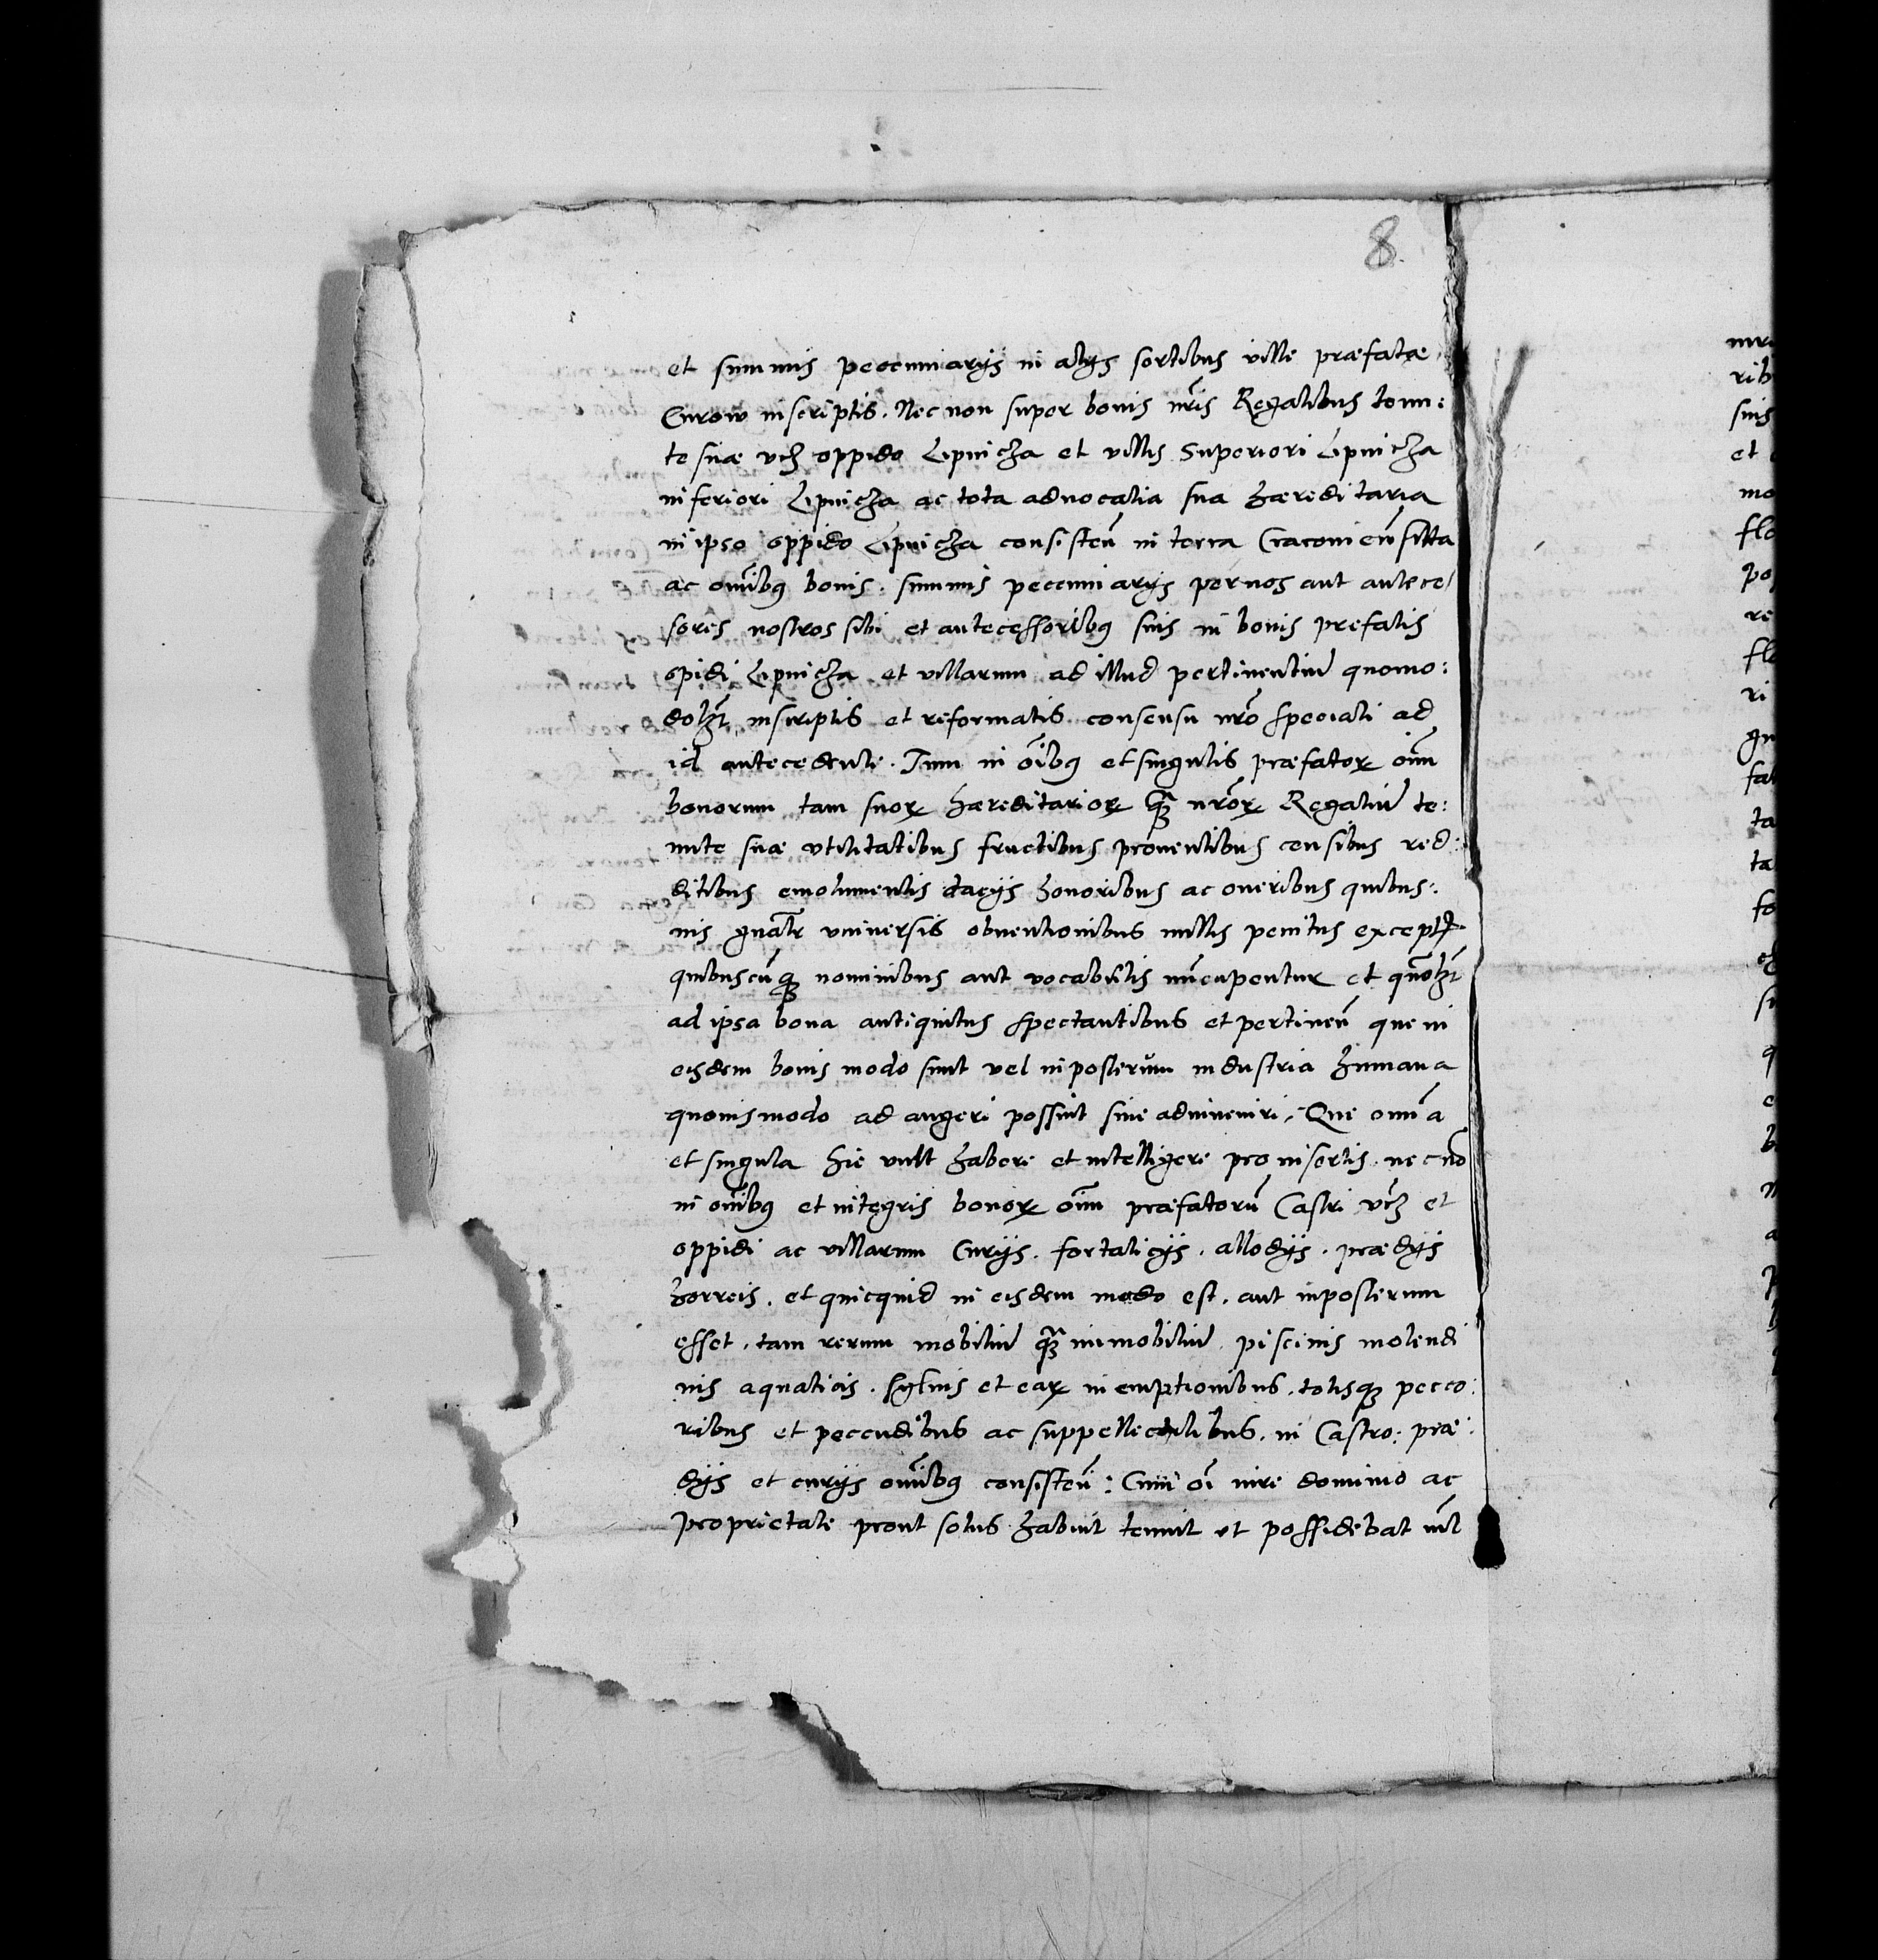 8.
et summis pecuniarijs in alijs sortibus ville præfatæ
Gurow inscriptis. Nec non super bonis nr̃is Regalibus tenu:
te suæ vcz oppido Lipnicza et villis Superiori Lipnicza
inferiori Lipnicza ac tota aduocatia sua hæreditaria
in ipso oppido Lipnicza consisteñ in terra Cracouieñ sitta
ac om̃ibq bonis. summis peccuniarijs per nos aut antece/
sores nostros sibi et antecessoribq suis in bonis prefatis
opidi Lipnicza et villarum ad illud pertinentiũ quomo:
dolz̃t inscriptis et reformatis consensu nr̃o speciali ad
id antecedente. Tum in õibq et singulis præfatoꝝ oĩm
bonorum tam suoꝝ hæreditarioꝝ qꝫ̃ nr̃oꝝ Regaliũ te:
nute suæ vtilitatibus fructibus prouentibus censibus red:
ditibus emolumentis dacijs honoribus ac oneribus quibus:
uis gñalr̃ vniuersis obuentionibus nullis penitus exceptꝭ
quibuscũqꝫ nominibus aut vocabulis nũcupentur et quõlz̃t
ad ipsa bona antiquitus spectantibus et pertineñ que in
eisdem bonis modo sunt vel inposterum industria humana
quouismodo ad augeri possint siue adinueniri. Que om̃ia
et singula hic vult habere et intelligere pro insertis. necnõ
in om̃ibq et integris bonoꝝ oĩm præfatorũ Castri vcz et
oppidi ac villarum Curijs. fortalicijs. allodijs. prædijs
horreis. et quicquid in eisdem modo est. aut inposterum
esset. tam rerum mobiliũ qꝫ̃ immobiliũ piscinis molendi
nis aquaticis. syluis et eaꝝ in emptionibus. totisqꝫ pecco:
ribus et peccudibus ac suppellectilibus. in Castro: præ:
dijs et curijs om̃ibq consisteñ: Cum õi iure dominio ac
proprietate prout solus habuit tenuit et possidebat